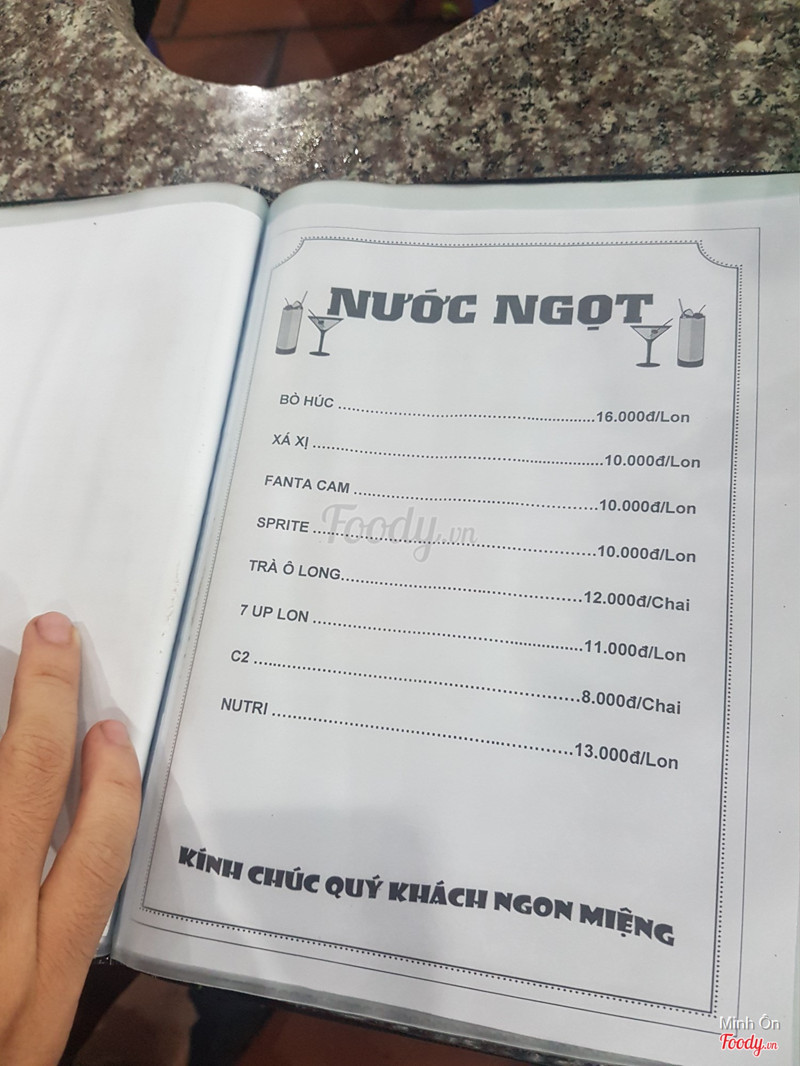 NƯỚC NGỌT
BÒ HÚC ........................................................16.000đ/Lon
XÁ XỊ ..............................................................10.000đ/Lon
FANTA CAM ....................................................10.000đ/Lon
SPRITE ............................................................10.000đ/Lon
TRÀ Ô LONG....................................................12.000đ/Chai
7 UP LON .........................................................11.000đ/Lon
C2 ....................................................................8.000đ/Chai
NUTRI ..............................................................13.000đ/Lon
KÍNH CHÚC QUÝ KHÁCH NGON MIỆNG
Foody.vn
Minh Ôn
Foody.vn